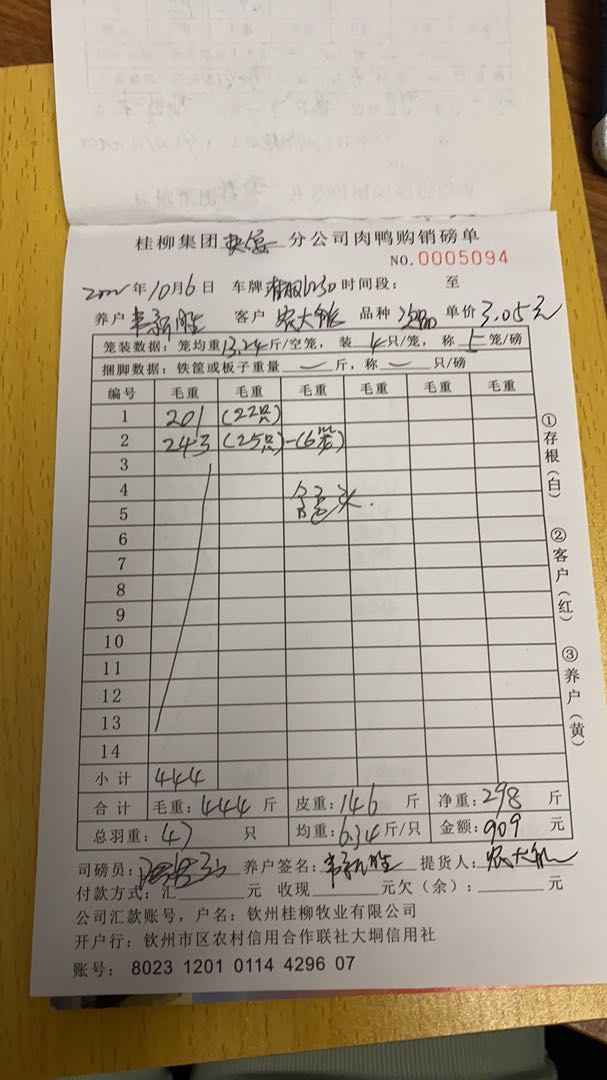 桂柳集团 分公司肉鸭购销磅单
NO.0005094
2022年10月6日 车牌 时间段： 至
养户 韦新胜 客户 农大 品种 单价 3.05元
笼装数据：笼均重13.24斤/空笼，装 4 只/笼，称 5 笼/磅
捆脚数据：铁筐或板子重量 — 斤，称 — 只/磅
编号 毛重 毛重 毛重 毛重 毛重 毛重
1 201 (22只)
2 243 (25只)-(6笼)
3
4
5
6
7
8
9
10
11
12
13
14
小计 444
合计 毛重：444 斤 皮重：146 斤 净重：298 斤
总羽重：47 只 均重：6.34斤/只 金额：909 元
司磅员： 养户签名：韦新胜 提货人：农大
付款方式：汇 元 收现 元欠（余）： 元
公司汇款账号，户名：钦州桂柳牧业有限公司
开户行：钦州市区农村信用合作联社大垌信用社
账号： 8023 1201 0114 4296 07
①存根（白）
②客户（红）
③养户（黄）